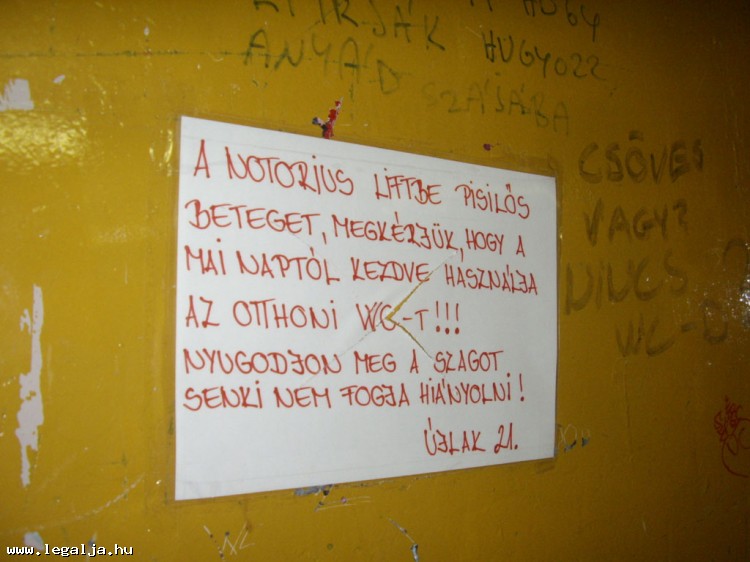 HOGY
ANYÁD HUGYOZZ
SZÁJÁBA
A NOTORIUS LIFTBE PISILŐS
BETEGET, MEGKÉRJÜK, HOGY A
MAI NAPTÓL KEZDVE HASZNÁLJA
AZ OTTHONI WC-T!!!
NYUGODJON MEG A SZAGOT
SENKI NEM FOGJA HIÁNYOLNI!
ÚJLAK 21.
CSÖVES
VAGY?
NINCS
WC-D
www.legalja.hu